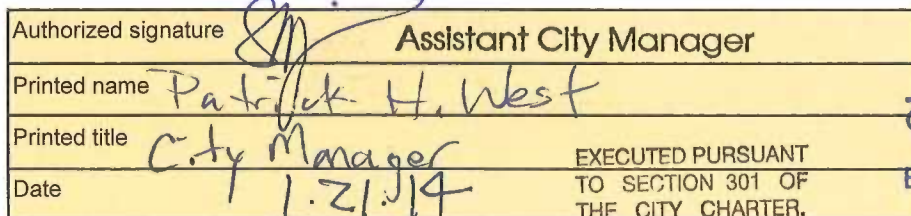 Authorized signature Assistant City Manager
Printed name Patrick H. West
Printed title City Manager
EXECUTED PURSUANT
Date 1.21.14 TO SECTION 301 OF
THE CITY CHARTER.